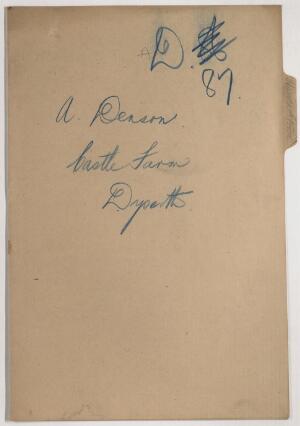 D.
87.
A. Denson.
Castle Farm
Dyserth.